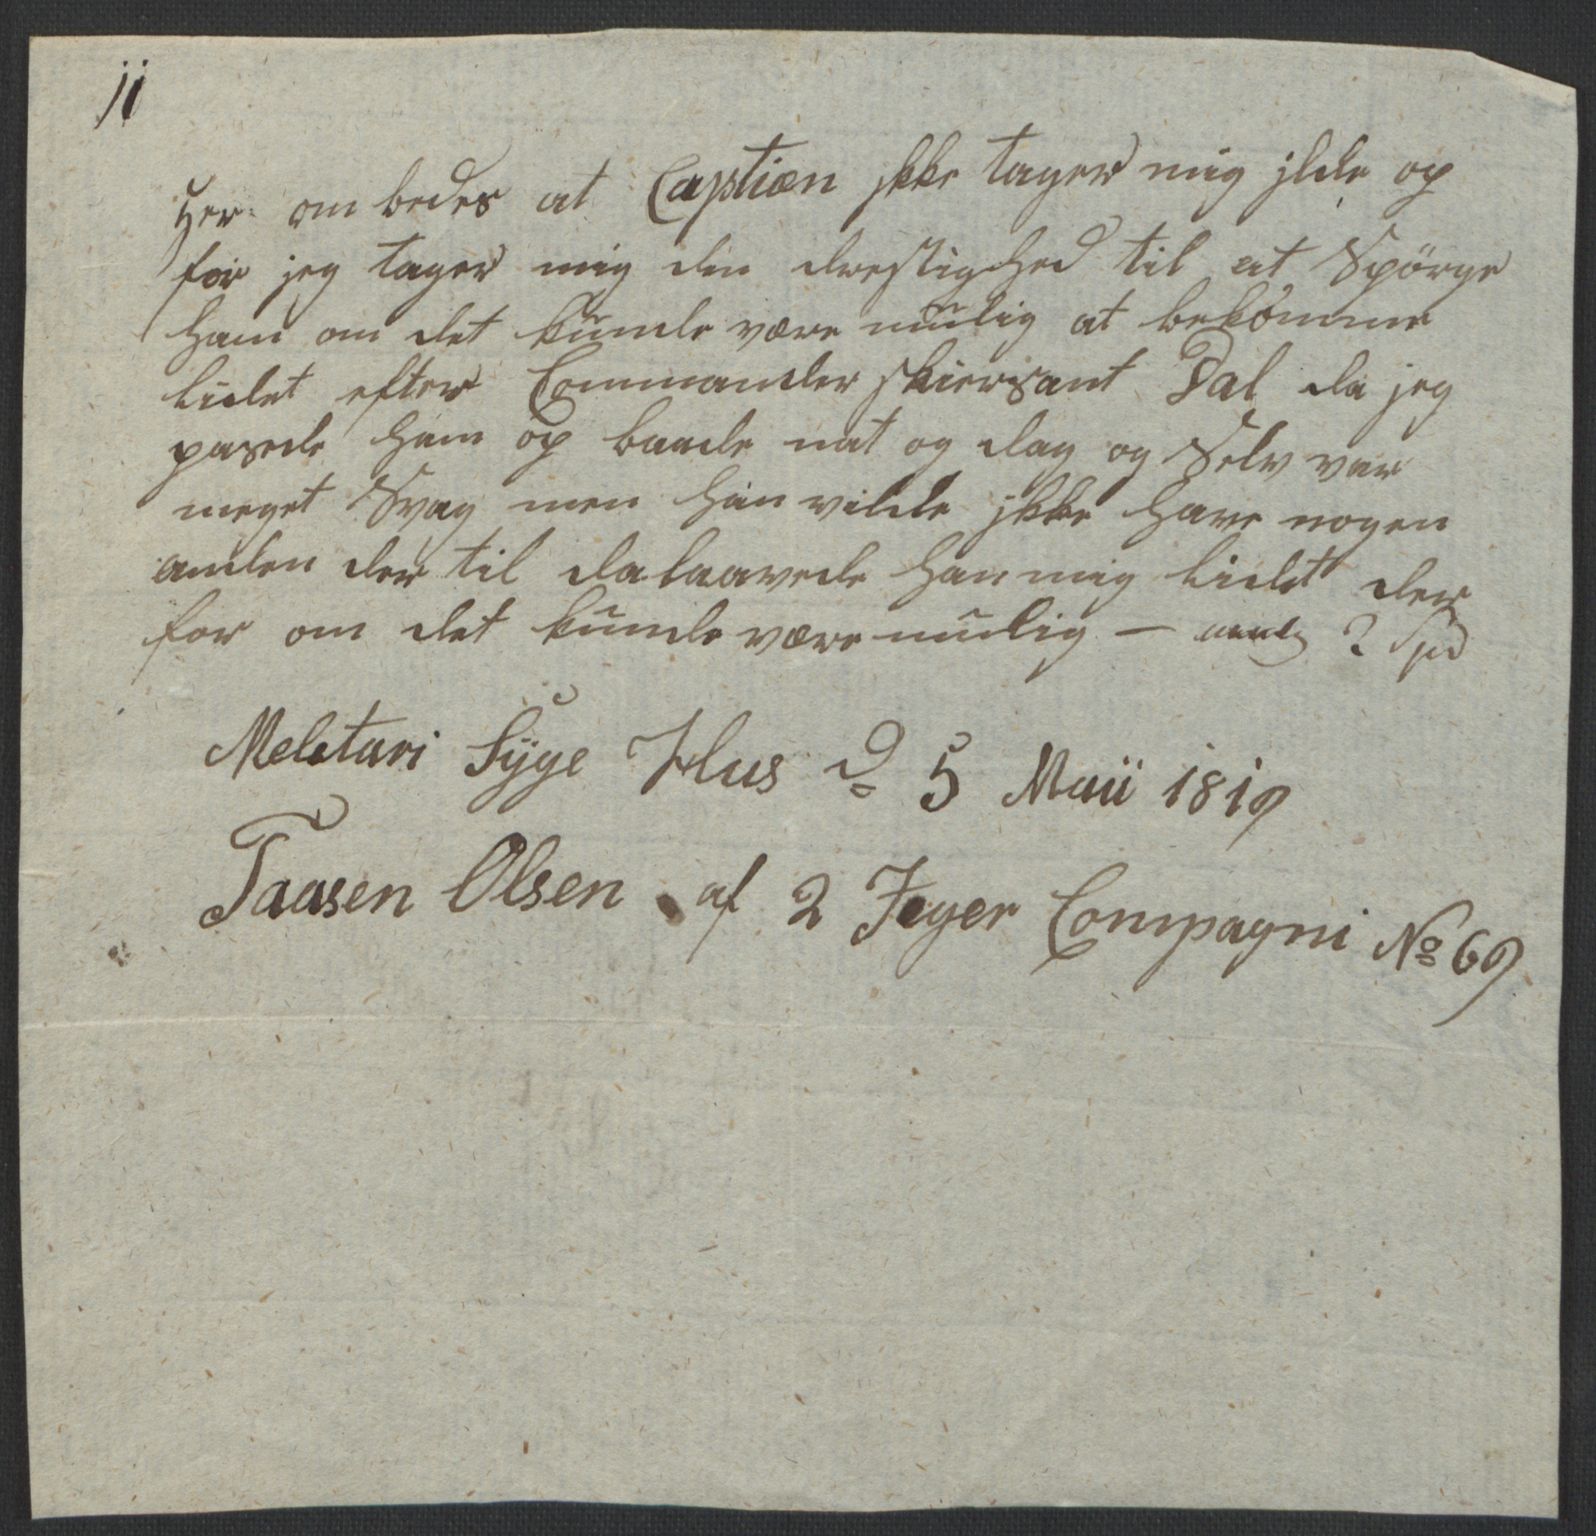 11
Her om bedes at Captiæn ikke tager mig ilde op
for jeg tager mig den drestighed til at Spörge
ham om det kunde være mulig at bekomme
lidet efter Commander skiersant Dal da jeg
pasede ham op baade nat og dag og Selv var
meget Svag men han vilde ikke have nogen
anden der til da laavede han mig lidet der
for om det kunde være mulig — 2 Spd
Meletari Syge Hus d 5 Maii 1819
Taasen Olsen af 2 Jeger Compagni No 69